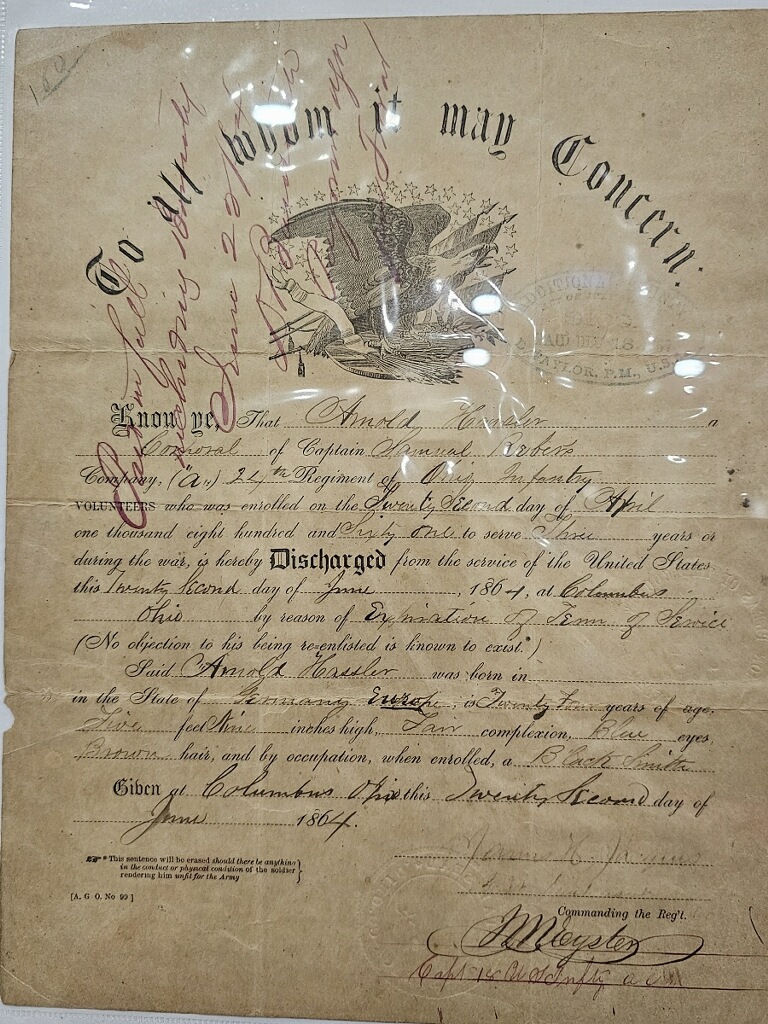 160
To all whom it may Concern:
Paid in full
June 20
ADDITIONAL
PAID
TAYLOR, P.M., U.S.A.
Know ye, That Arnold Hassler a
Corporal of Captain Samuel
Company, ("A") 24th Regiment of Ohio Infantry
VOLUNTEERS who was enrolled on the Twenty Second day of April
one thousand eight hundred and Sixty one to serve Three years or
during the war, is hereby Discharged from the service of the United States
this Twenty Second day of June, 1864, at Columbus
Ohio by reason of Expiration of Term of Service
(No objection to his being re-enlisted is known to exist.*)
Said Arnold Hassler was born in
in the State of Germany Europe, is Twenty Four years of age,
Five feet Nine inches high, Fair complexion, Blue eyes,
Brown hair, and by occupation, when enrolled, a Black Smith
Given at Columbus Ohio this Twenty Second day of
June 1864.
* This sentence will be erased should there be anything
in the conduct or physical condition of the soldier
rendering him unfit for the Army
[A. G. O. No 99]
Commanding the Reg't.
Eyster
Capt 18 U S Infty